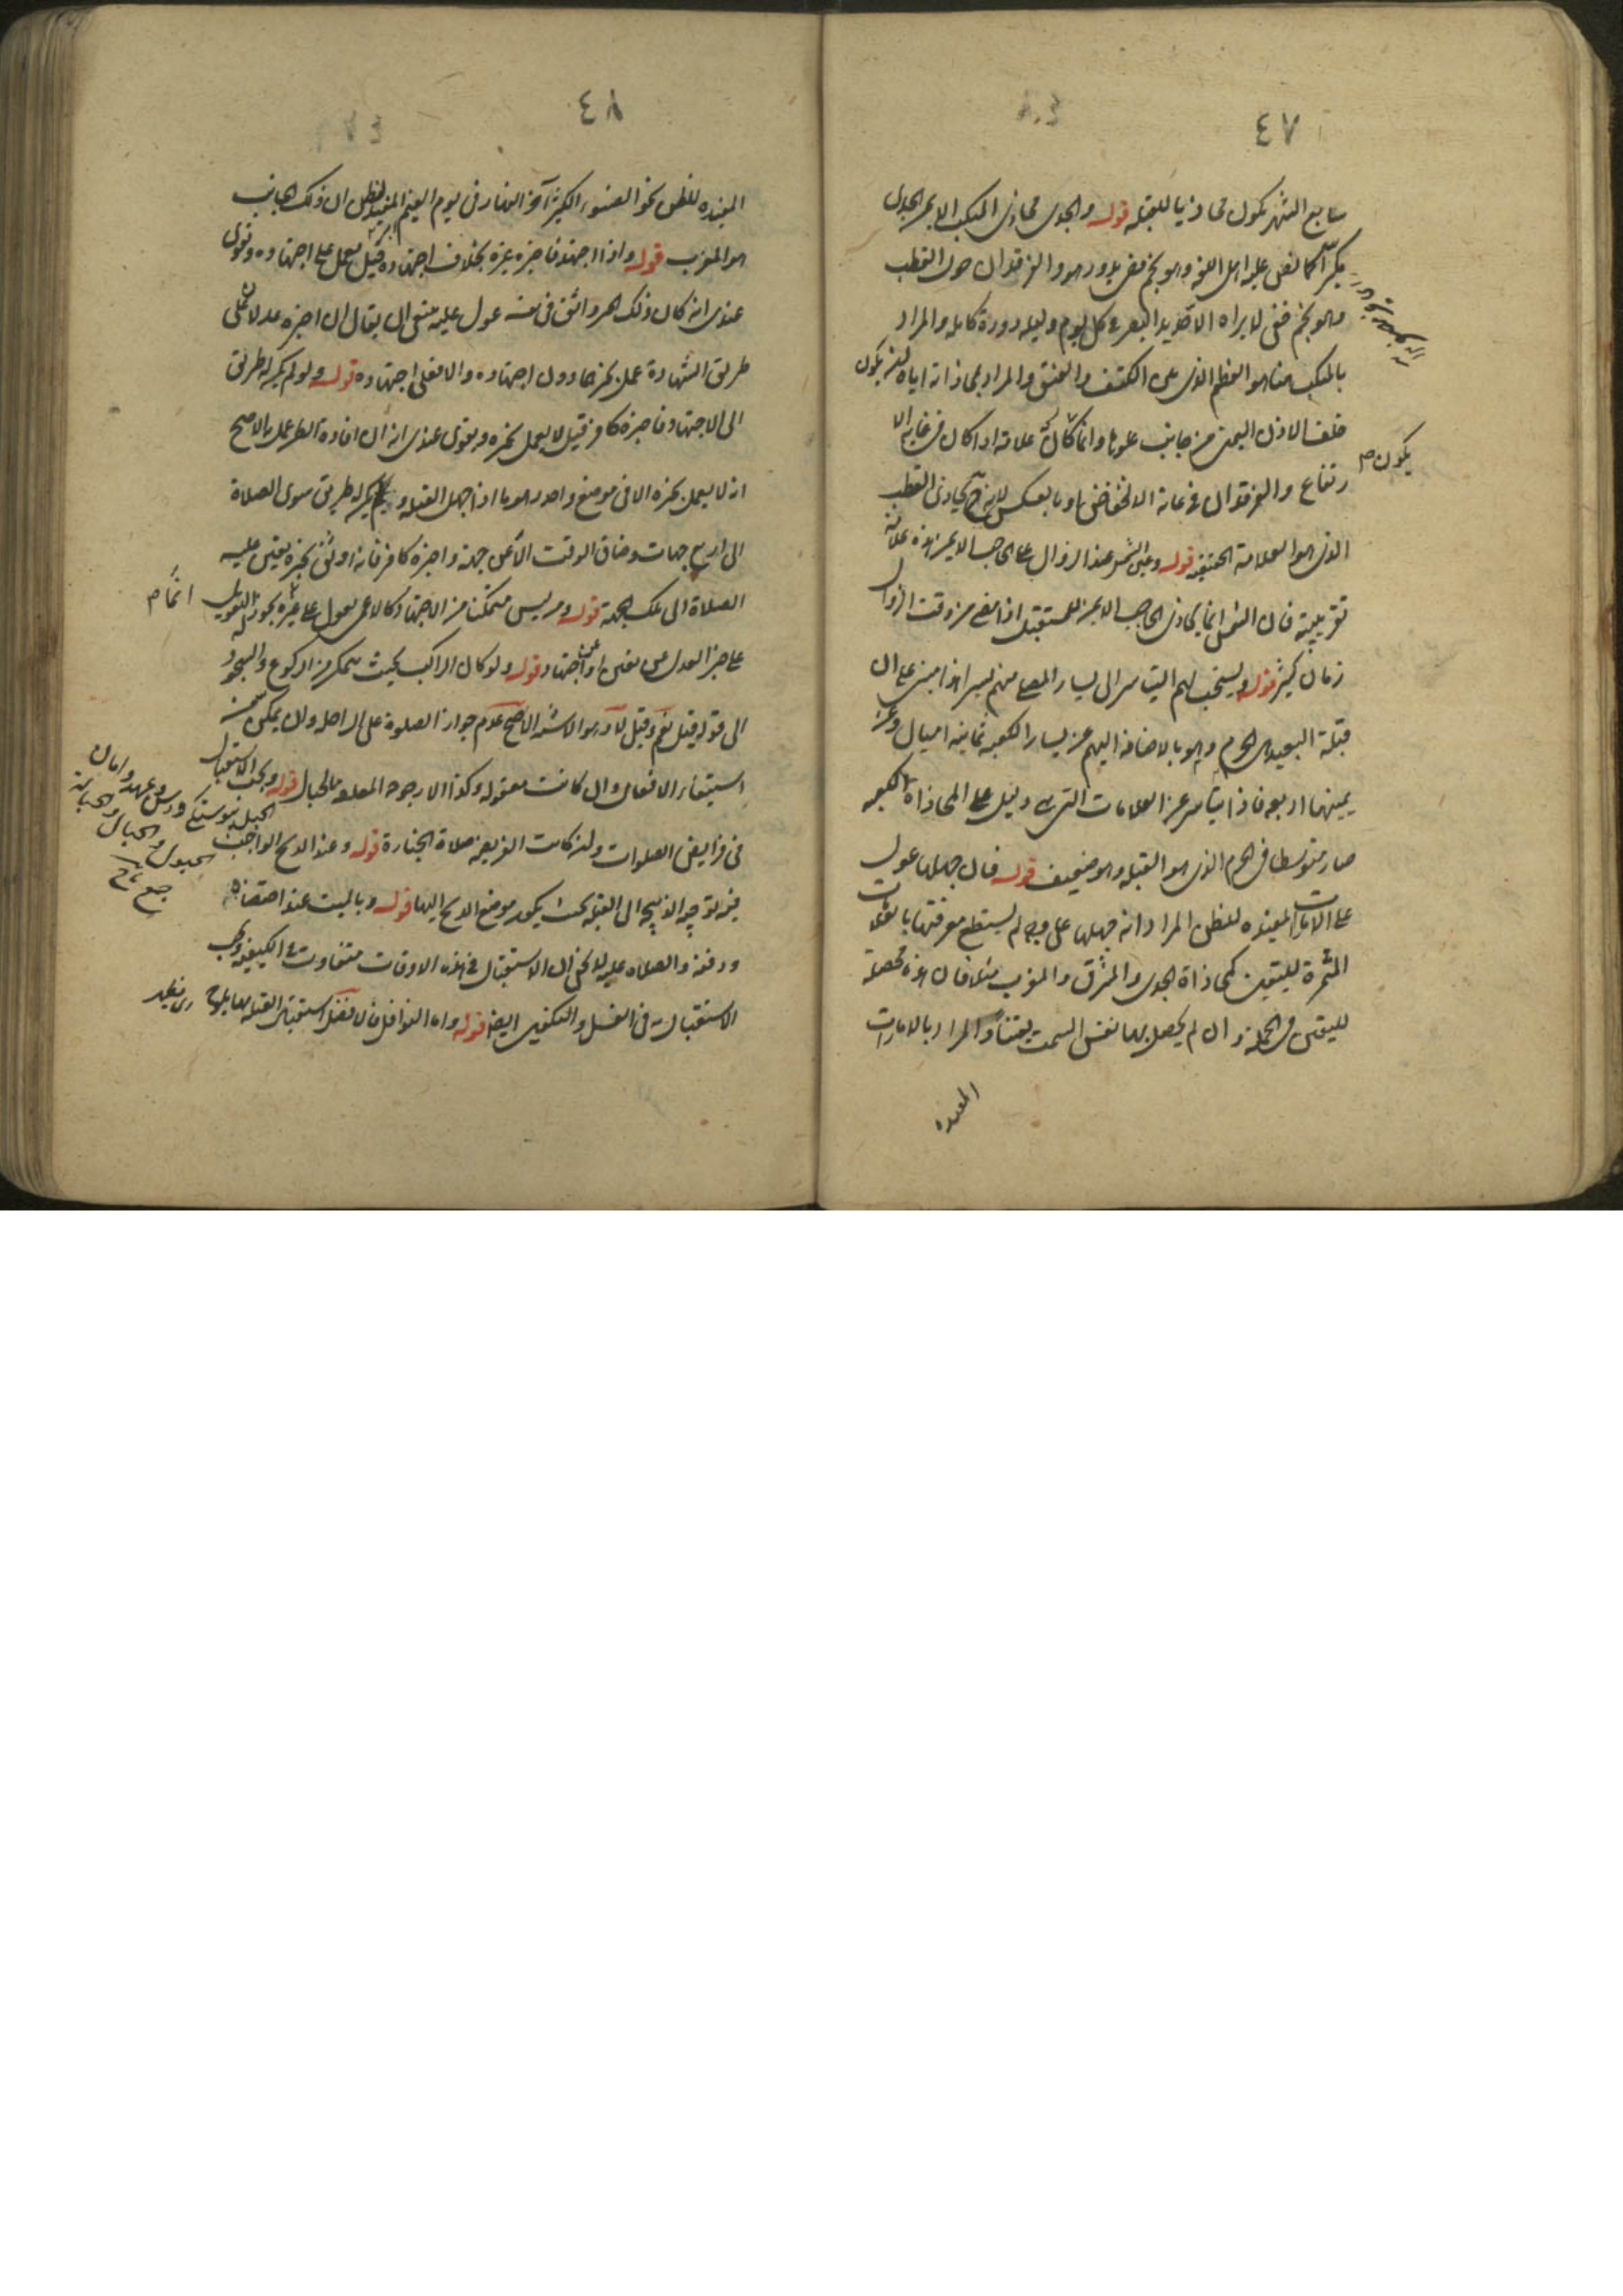 ٤٧
سابع الشهر يكون محاذيا للقبلة قوله والجدى محاذى المنكب الايمن الجدى
مكبر كما نص عليه اهل اللغة وهو نجم مضئ يدور هو والفرقدان حول القطب
وهو نجم خفى لا يراه الا حديد البصر فى كل يوم وليلة دورة كاملة والمراد
بالمنكب هنا هو العظم الذى بين الكتف والعنق والمراد بمحاذاته اياه ان يكون
خلف الاذن اليمنى من جانب علوها وانما كان علامة اذا كان فى غاية الا
رتفاع والفرقدان فى غاية الانخفاض او بالعكس لانه ح يحاذى القطب
الذى هو العلامة الحقيقة قوله وعين الشمس عند الزوال على الحاجب الايمن هذه علامة
تقريبية فان الشمس انما يحاذى الحاجب الايمن للمستقبل اذا مضى من وقت الزوال
زمان كثير قوله ويستحب لهم التياسر الى يسار المصلى منهم يسيرا هذا مبنى على ان
قبلة البعيد هى الحرم وهو بالاضافة اليهم عن يسار الكعبة ثمانية اميال وعن
يمينها اربعة فاذا تياسر عن العلامات التى هى دليل على المحاذاة الكعبة
صار متوسطا فى الحرم الذى هو القبلة وهو ضعيف قوله فان جهلها عول
على الامارات المفيدة للظن المراد انه جهلها على وجه لم يستطع معرفتها بالعلامات
المثمرة لليقين كمحاذاة الجدى والمشرق والمغرب مثلا فان هذه محصلة
لليقين فى الجملة وان لم يحصل بها نفس السمت يقينا والمراد بالامارات
المفيدة
يكون م
٤٨
المفيدة للظن نحو الضوء الكثير آخر النهار فى يوم الغيم المفيد للظن ان ذلك الجانب
هو المغرب قوله واذا اجتهد فاخبره غيره بخلاف اجتهاده قيل يعمل على اجتهاده ويقوى
عندى انه كان ذلك المخبر اوثق فى نفسه عول عليه ينبغى ان يقال ان اخبره عدلان على
طريق الشهادة عمل بخبرهما دون اجتهاده والا فعلى اجتهاده قوله ولو لم يكن له طريق
الى الاجتهاد فاخبره كافر قيل لا يعمل بخبره ويقوى عندى انه ان افاده الظن عمل به الاصح
انه لا يعمل بخبره الا فى موضع واحد وهو ما اذا جهل القبلة ولم يكن له طريق سوى الصلاة
الى اربع جهات وضاق الوقت الا عن جهة واخبره كافر فانه اوثق بخبره يتعين عليه
الصلاة الى تلك الجهة قوله ومن ليس متمكنا من الاجتهاد كالاعمى يعول على غيره يجوز له التعويل
على خبر العدل عن يقين او عن اجتهاد قوله ولو كان الراكب بحيث يتمكن من الركوع والسجود
الى قوله قيل نعم وقيل لا وهو الاشبه الاصح عدم جواز الصلوة على الراحلة وان يمكن من
استيفاء الافعال وان كانت معقولة وكذا الارجوحة المعلقة بالحبال قوله ويجب الاستقبال
فى فرايض الصلوات وان كانت الفريضة صلاة الجنازة قوله وعند الذبح الواجب
فيه توجيه الذبيحة الى القبلة بحيث يكون موضع الذبح اليها قوله وبالميت عند احتضاره
ودفنه والصلاة عليه لا يخفى ان الاستقبال فى هذه الاوقات متفاوت فى الكيفية ويجب
الاستقبال فى الغسل والتكفين ايضا قوله واما النوافل فالافضل استقبال القبلة بها
انما م
الحبل پيوستگى ورسن وعهد وامان
الحبول والحبال والحبالة
جمع